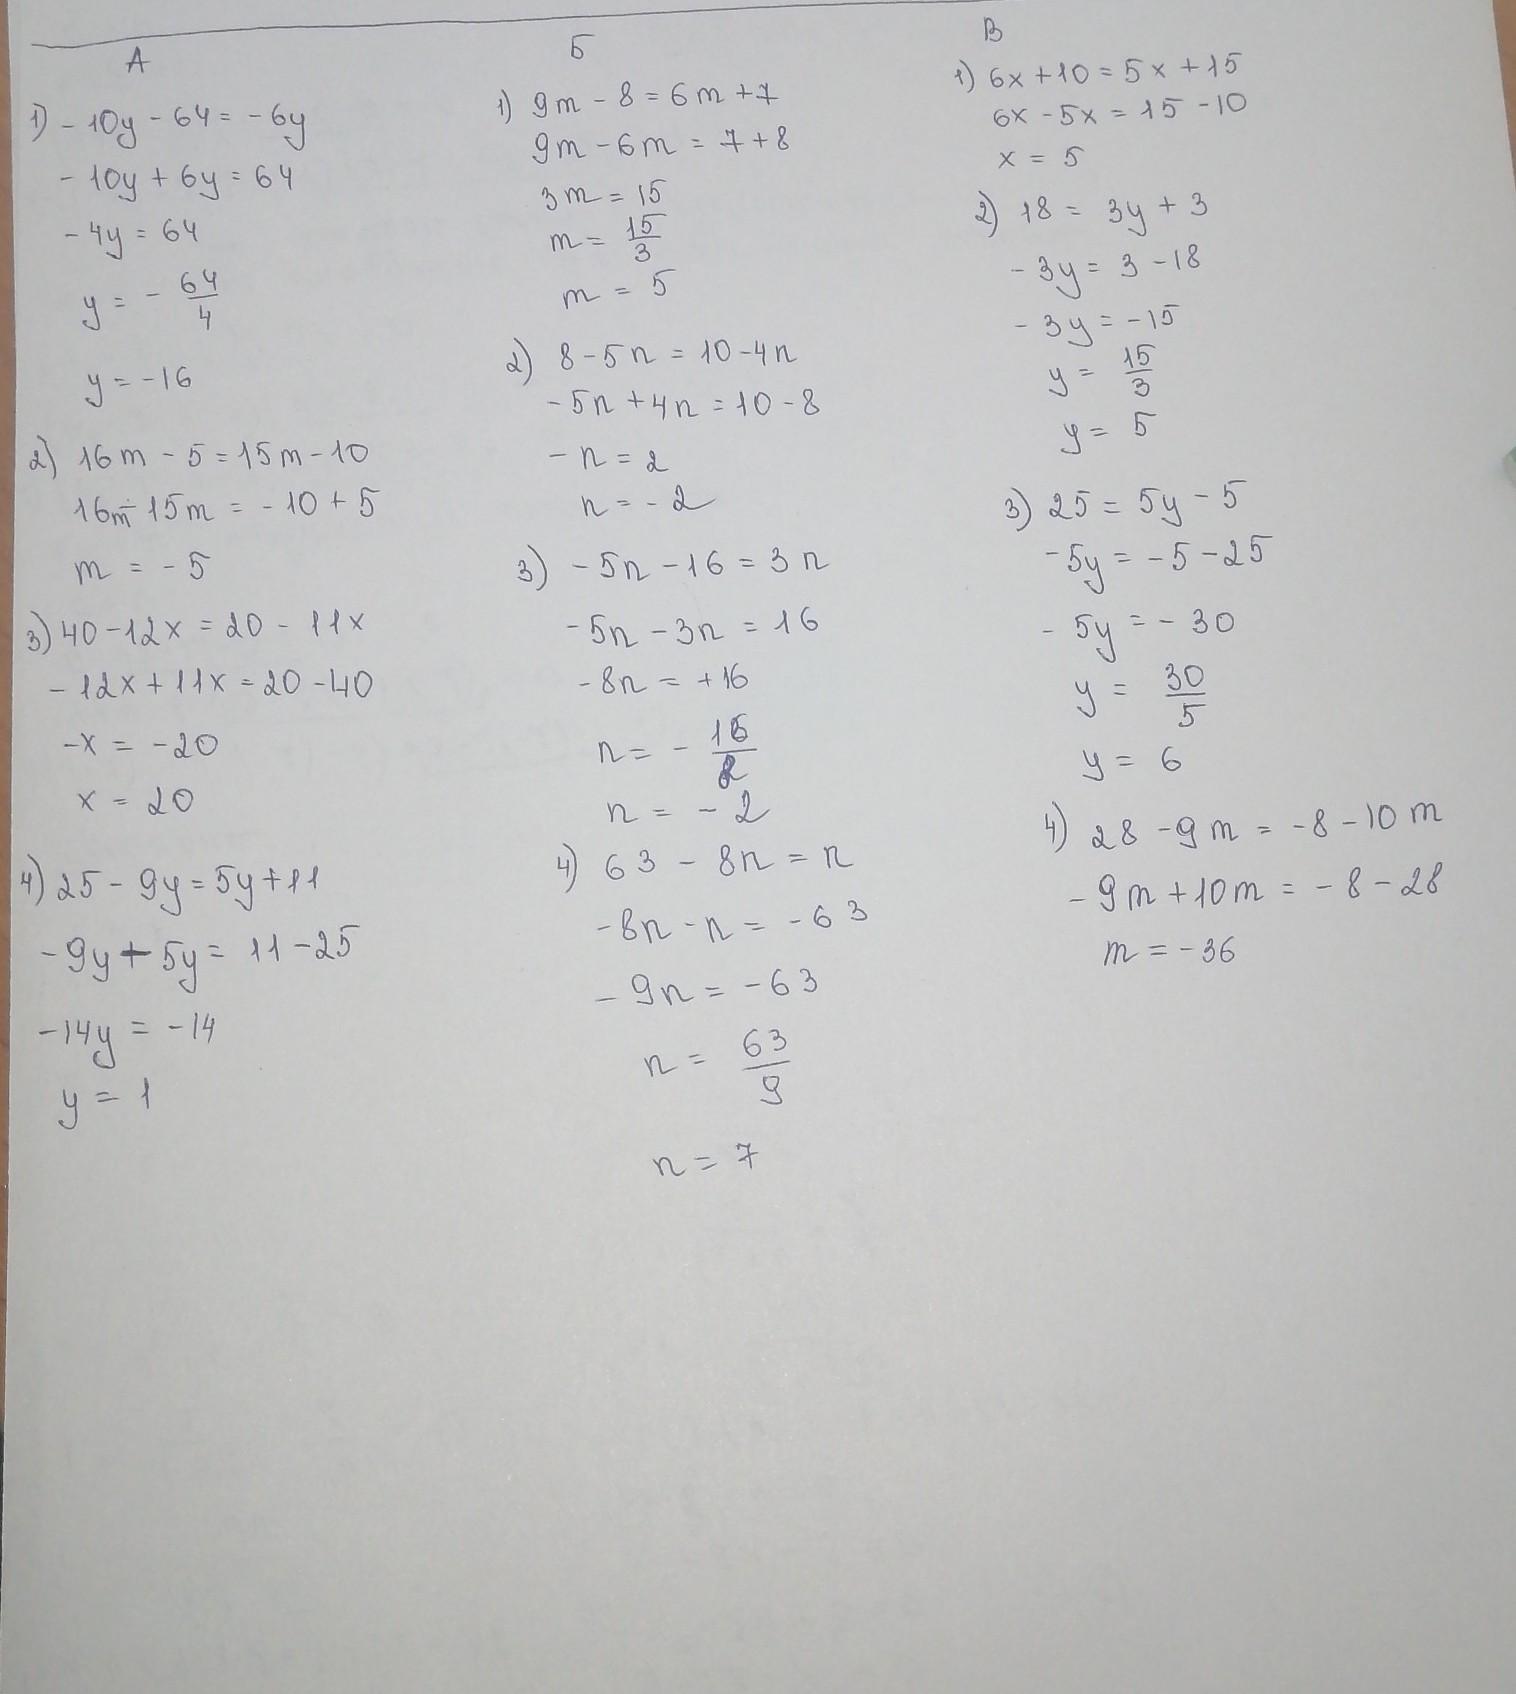 А
1) - 10y - 64 = - 6y
- 10y + 6y = 64
- 4y = 64
y = - 64/4
y = - 16
2) 16m - 5 = 15m - 10
16m - 15m = - 10 + 5
m = - 5
3) 40 - 12x = 20 - 11x
- 12x + 11x = 20 - 40
- x = - 20
x = 20
4) 25 - 9y = 5y + 11
- 9y - 5y = 11 - 25
- 14y = - 14
y = 1
Б
1) 9m - 8 = 6m + 7
9m - 6m = 7 + 8
3m = 15
m = 15/3
m = 5
2) 8 - 5n = 10 - 4n
- 5n + 4n = 10 - 8
- n = 2
n = - 2
3) - 5n - 16 = 3n
- 5n - 3n = 16
- 8n = + 16
n = - 16/8
n = - 2
4) 63 - 8n = n
- 8n - n = - 63
- 9n = - 63
n = 63/9
n = 7
В
1) 6x + 10 = 5x + 15
6x - 5x = 15 - 10
x = 5
2) 18 = 3y + 3
- 3y = 3 - 18
- 3y = - 15
y = 15/3
y = 5
3) 25 = 5y - 5
- 5y = - 5 - 25
- 5y = - 30
y = 30/5
y = 6
4) 28 - 9m = - 8 - 10m
- 9m + 10m = - 8 - 28
m = - 36